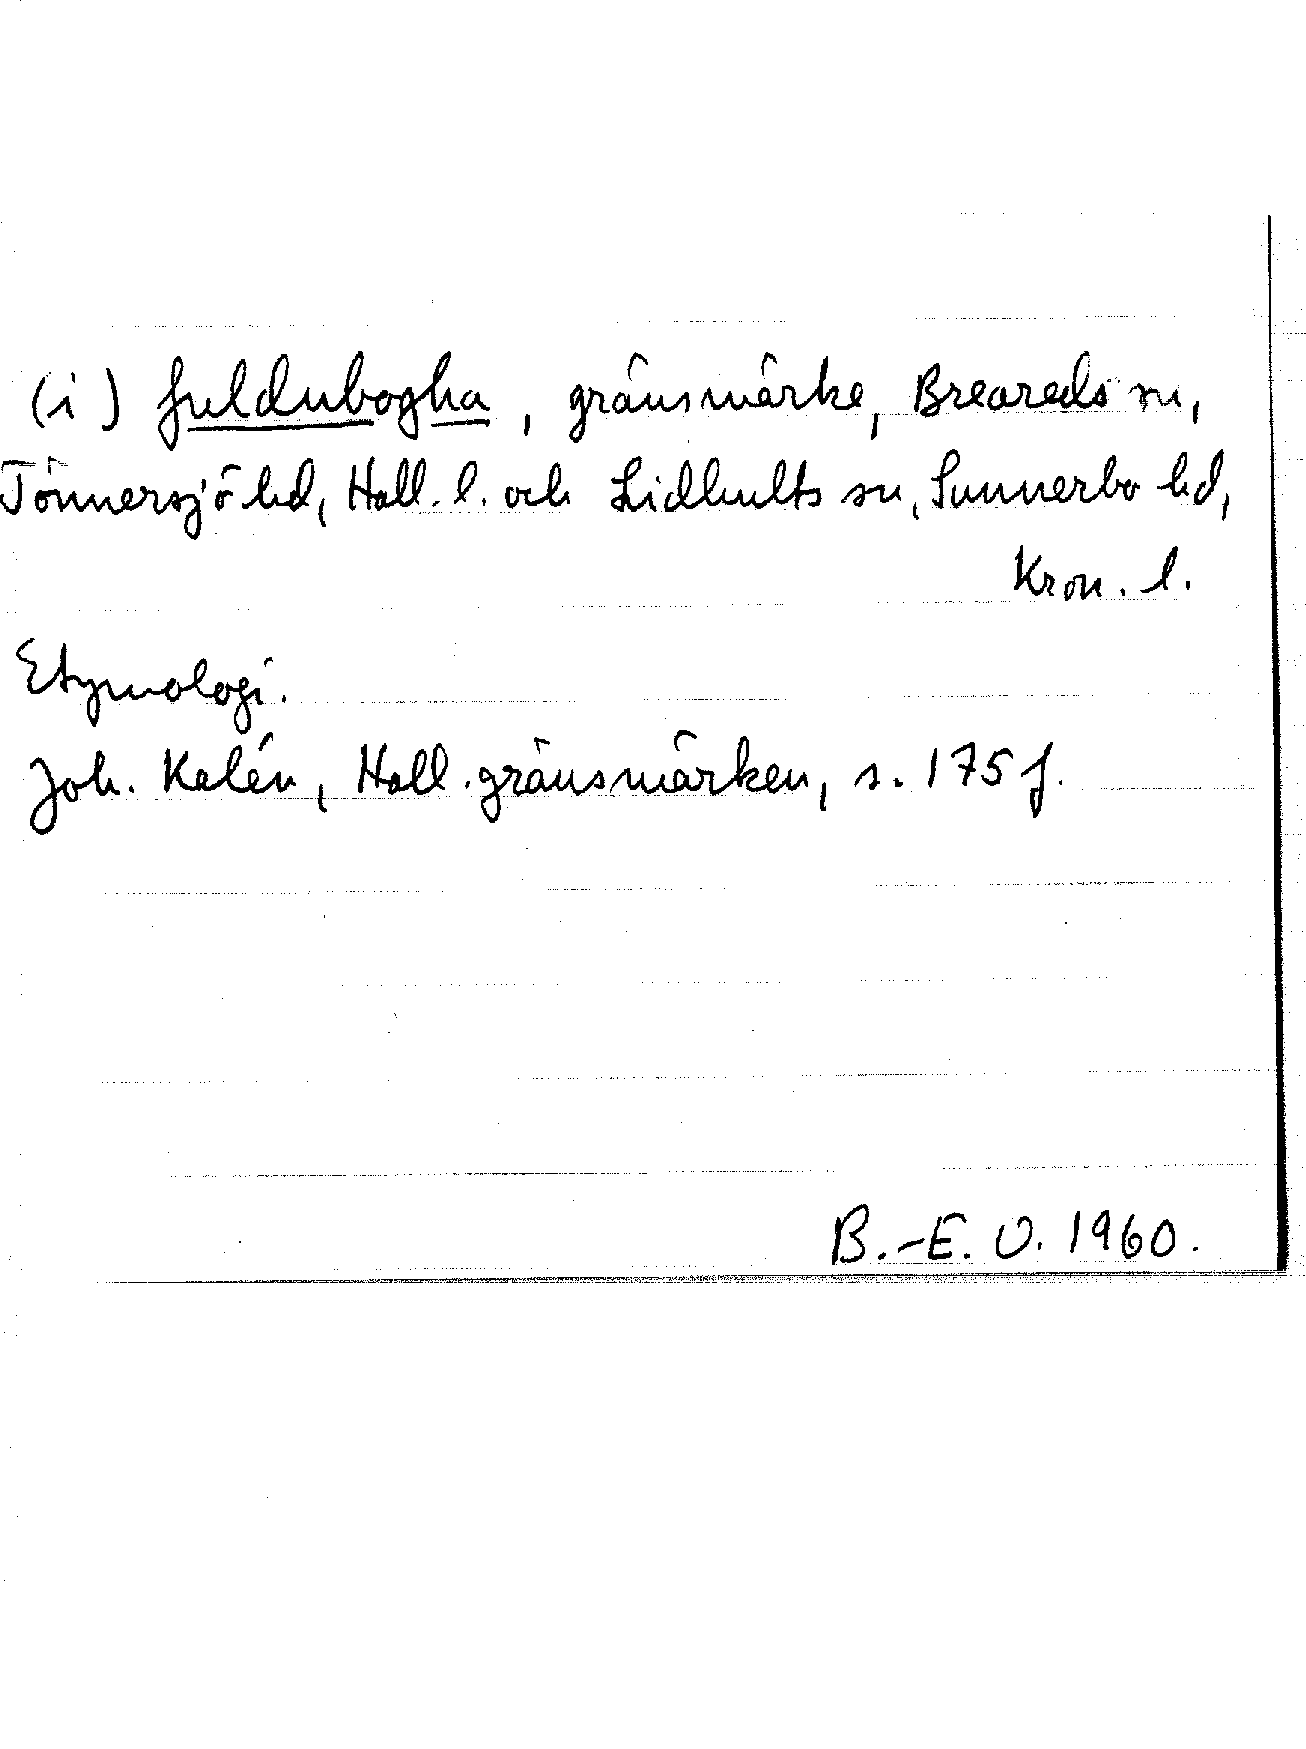 (i) fuldubogha, gränsmärke, Breareds sn,
Tönnersjö hd, Hall. l. och Lidhults sn, Sunnerbo hd,
Kron. l.
Etymologi.
Joh. Kalén, Hall. gränsmärken, s. 175 f.
B.-E. O. 1960.